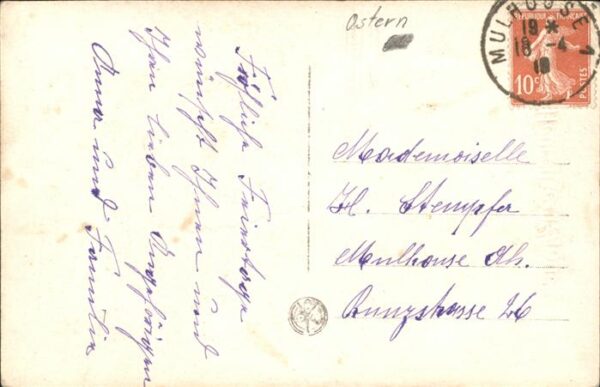 Ostern
Fröhliche Feiertage
wünscht Ihnen und
Ihren lieben Angehörigen
Anna und Familie
MULHOUSE 1
19 *
18 -4
RÉPUBLIQUE FRANÇAISE
10c
POSTES
Mademoiselle
H. Stempfer
Mulhouse Els.
26